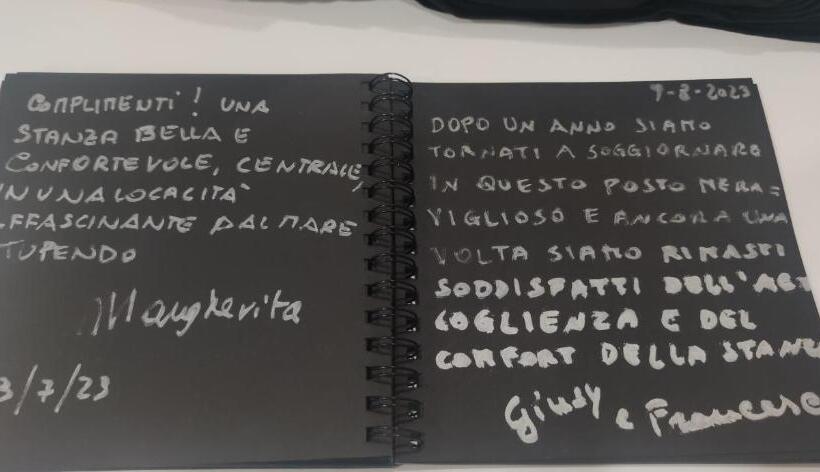 COMPLIMENTI! UNA
STANZA BELLA E
CONFORTEVOLE, CENTRALE,
IN UNA LOCALITÀ
AFFASCINANTE DAL MARE
STUPENDO
Margherita
3/7/23
9-8-2023
DOPO UN ANNO SIAMO
TORNATI A SOGGIORNARE
IN QUESTO POSTO MERA=
VIGLIOSO E ANCORA UNA
VOLTA SIAMO RIMASTI
SODDISFATTI DELL'AC
COGLIENZA E DEL
COMFORT DELLA STANZ
Giusy e Francesc